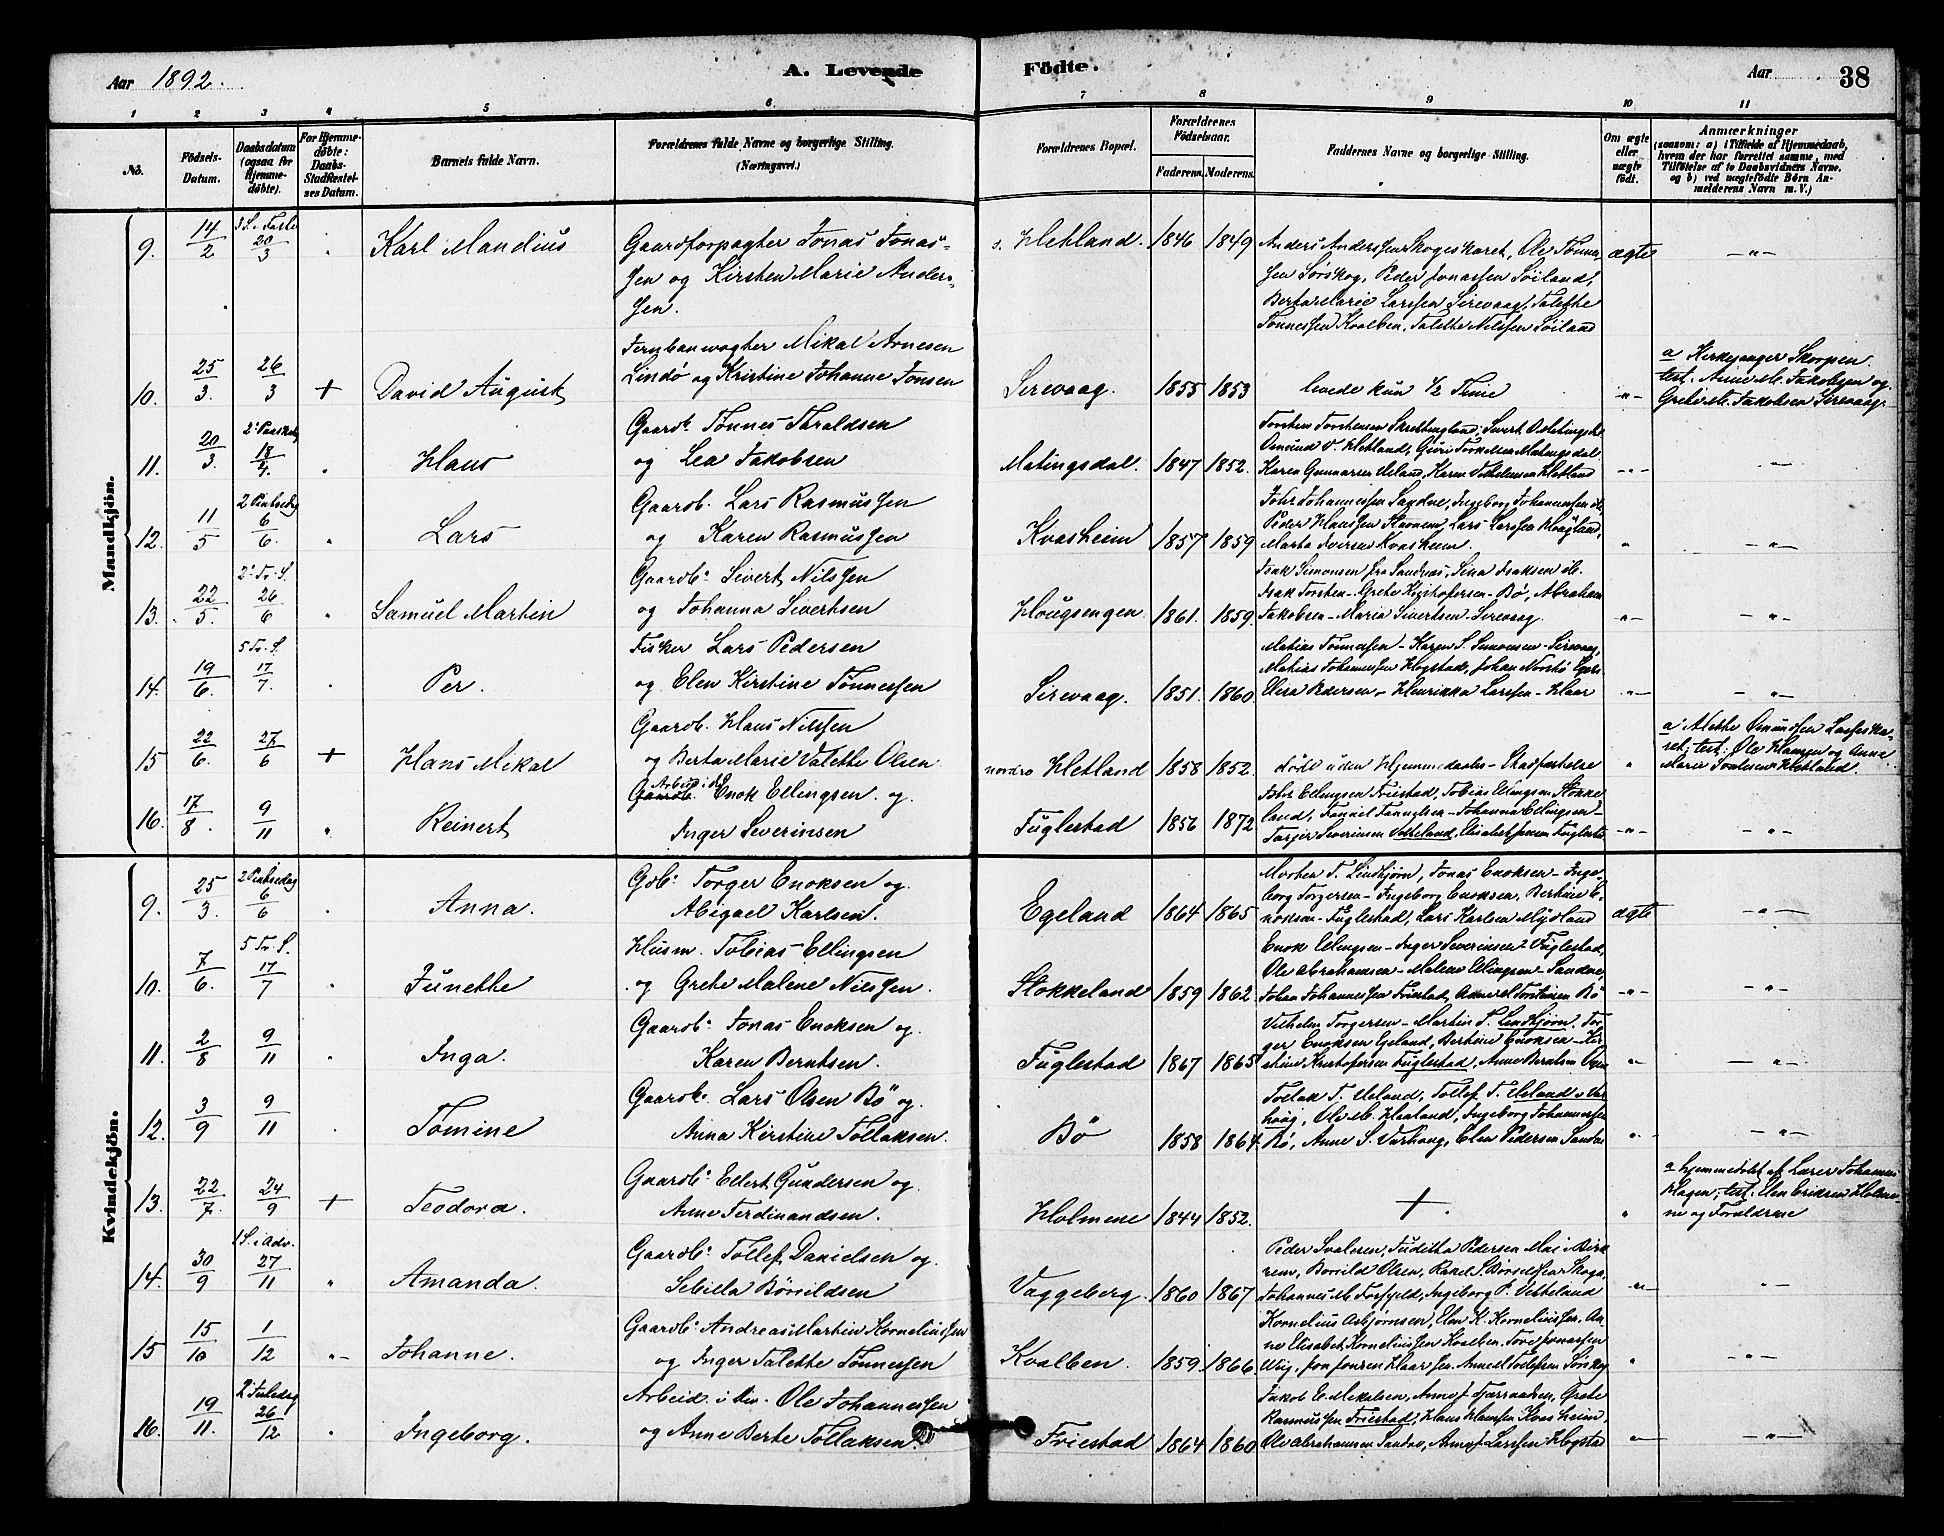 Aar 1892.
A. Levende
Födte.
Aar
38
1 2 3 4 5 6 7 8 9 10 11
No.
Födsels-Datum.
Daabsdatum (ogsaa for Hjemmedöbte).
For Hjemmedöbte: Daabs-Stadfæstelses Datum.
Barnets fulde Navn.
Forældrenes fulde Navne og borgerlige Stilling.
(Næringsvei.)
Forældrenes Bopæl.
Forældrenes Födselsaar.
Faderens. Moderens.
Faddernes Navne og borgerlige Stilling.
Om ægte eller uægte födt.
Anmærkninger
(saasom: a) i Tilfælde af Hjemmedaab, hvem der har forrettet samme, med Tilföielse af to Daabsvidners Navne, og b) ved uægtefödte Börn Anmelderens Navn m. V.)
Mandkjön.
9. 14/2 3 S. i Faste 20/3 Karl Mandius
Gaardforpagter Jonas Jonas-
sen og Kirsten Marie Ander-
sen.
s. Hetland. 1846 1849
Anders Anderssen Skogeskaret, Ole Tönne-
sen Sörskog, Peder Jonassen Söiland,
Berta Marie Larssen Sirevaag, Talethe
Tönnessen Kvalben, Talette Nilssen Söiland
ægte
10. 25/3. 26/3 + David August
Jernbanvogter Mikal Arnesen
Lindö og Kristine Johanne Jonsen
Sirevaag. 1855 1853
levede kun 1/2 Time
a Kirkesanger Skorpen
test. Anne M. Jakobsen og
Grete M. Jakobsen Sirevaag.
11. 20/3. 2' Paaskedg 18/4. Hans
Gaardb. Tönnes Taraldsen
og Lea Jakobsen
Matingsdal. 1847 1852.
Torsten Torstensen Skretlingland, Sivert O. Matingsdl.
Osmund V. Hetland, Guri Torkelsen Matingsdal
Karen Gunnarsen Ueland, Karen Vilhelmsen Hetland
12. 11/5 2 Pintsedg 6/6. Lars
Gaardb. Lars Rasmussen
og Karen Rasmussen
Kvasheim 1857 1859
Johs Johannessen Sandve, Ingeborg Johannessen ib.
Peder Klaussen Stavnem, Lars Larssen Haugland,
Marta Iversen Kvasheim.
13. 22/5. 2' Tr. S. 26/6 Samuel Martin
Gaardb. Sivert Nilssen
og Johanna Sivertsen
Hougsengen. 1861. 1859.
Isak Simonsen fra Sandnæs, Sina Isaksen ib.
Isak Torsten - Grete Kristofersen - Bö, Abraham
Jakobsen - Maria Sivertsen - Sirevaag
14. 19/6. 5 Tr. S. 17/7. Per.
Fisker Lars Pedersen
og Elen Kirstine Tönnessen
Sirevaag. 1851. 1860.
Matias Tönnessen - Karen S. Simonsen - Sirevaag,
Matias Johannessen Hogstad, Johan Norstö Egers.
Elisa Pedersen - Henrikka Larssen - Haar
15 22/6. 27/6 + Hans Mikal
Gaardb. Hans Nilssen
og Berta Marie Valette Olsen
nordre Hetland 1858 1852.
döde uden Hjemmedaabs-Stadfæstelse
a' Mette Omundsen Laxeska-
ret; test: Ole Hansen og Anne
Marie Svalesen Hetland.
16. 17/8. 9/11 Reinert
Arbeid. i
Enok Ellingsen og
Inger Severinsen
Fuglestad 1856 1872
Johs Ellingsen Friestad, Tobias Ellingsen Stokke
land, Johanna Ellingsen -
Torger Severinsen Vetteland, Elisabet Jensen Fuglesta
Kvindekjön.
9. 25/3. 2 Pintsedag 6/6 Anna.
Gdb. Torger Enoksen og
Abigael Karlsen.
Egeland 1864 1865
Morten T. Lindtjörn, Jonas Enoksen - Inge-
borg Torgersen - Ingeborg Enoksen, Bertine E-
noksen - Fuglestad, Lars Karlsen Mydland
ægte
10. 7/6. 5 Tr. S. 17/7 Junette
Husm. Tobias Ellingsen
og Grete Malene Nilssen.
Stokkeland 1859 1862
Enok Ellingsen - Inger Severinsen Fuglestad,
Ole Abrahamsen - Malene Ellingsen - Sandve,
Johan Johannessen Friestad, Torstensen Bö
11. 2/8 9/11 Inga.
Gaardb. Jonas Enoksen og
Karen Berntsen.
Fuglestad 1867 1865
Vilhelm Torgersen - Martin T. Lindtjörn, Tor-
ger Enoksen Egeland, Bertine Enoksen - Kir-
stine Kristofersen Fuglestad, Anne Berntsen
12. 3/9 9/11 Tomine
Gaardb. Lars Olsen Bö og
Anna Kirstine Tollaksen.
Bö 1858 1864.
Tollak T. Ueland, Tollef T. Ueland - Var
haug, Ole M. Haaland, Ingeborg Johannessen
Bö, Anne S. Varhaug, Elen Pedersen Sandve
13. 22/7. 24/9 + Teodora.
Gaardb. Eilert Gundersen og
Anne Ferdinandsen.
Holmene 1844 1852.
+
a hjemmedöbt af Lærer Johannes
Hagen; test. Elen Eriksen Holme-
ne og Forældrene
14. 30/9 1 S. i Adv. 27/11 Amanda.
Gaardb. Tollef Danielsen og
Sebilla Börildsen
Vaggeberg. 1860 1867
Peder Svalesen, Juditha Pedersen Mai i Birk
rem, Borrild Olsen, Rakel S. Skoga,
Johannes M. Forsfjeld, Ingeborg P. Vetteland
15 15/10 1/12 Johanne.
Gaardb. Andreas Martin Korneliussen
og Inger Talette Tönnessen
Kvalben. 1859. 1866.
Kornelius Asbjörnsen, Elen K. Korneliussen. An-
ne Elisabet Korneliussen Kvalben, Tore Jonassen
Wiig, Jon Jonsen Haar Anne M. Tollefsen Sörskog
16. 19/11. 2' Juledag 26/12 Ingeborg.
Arbeid. i Ov. Ole Johannessen
og Anne Berte Tollaksen.
Friestad 1864 1860
Jakob E. Mikalsen, Anna J. Grete
Rasmussen Friestad, Hans Hanssen Kvasheim,
Ole Abrahamsen Sandve, Anna J. Larssen Hogstad